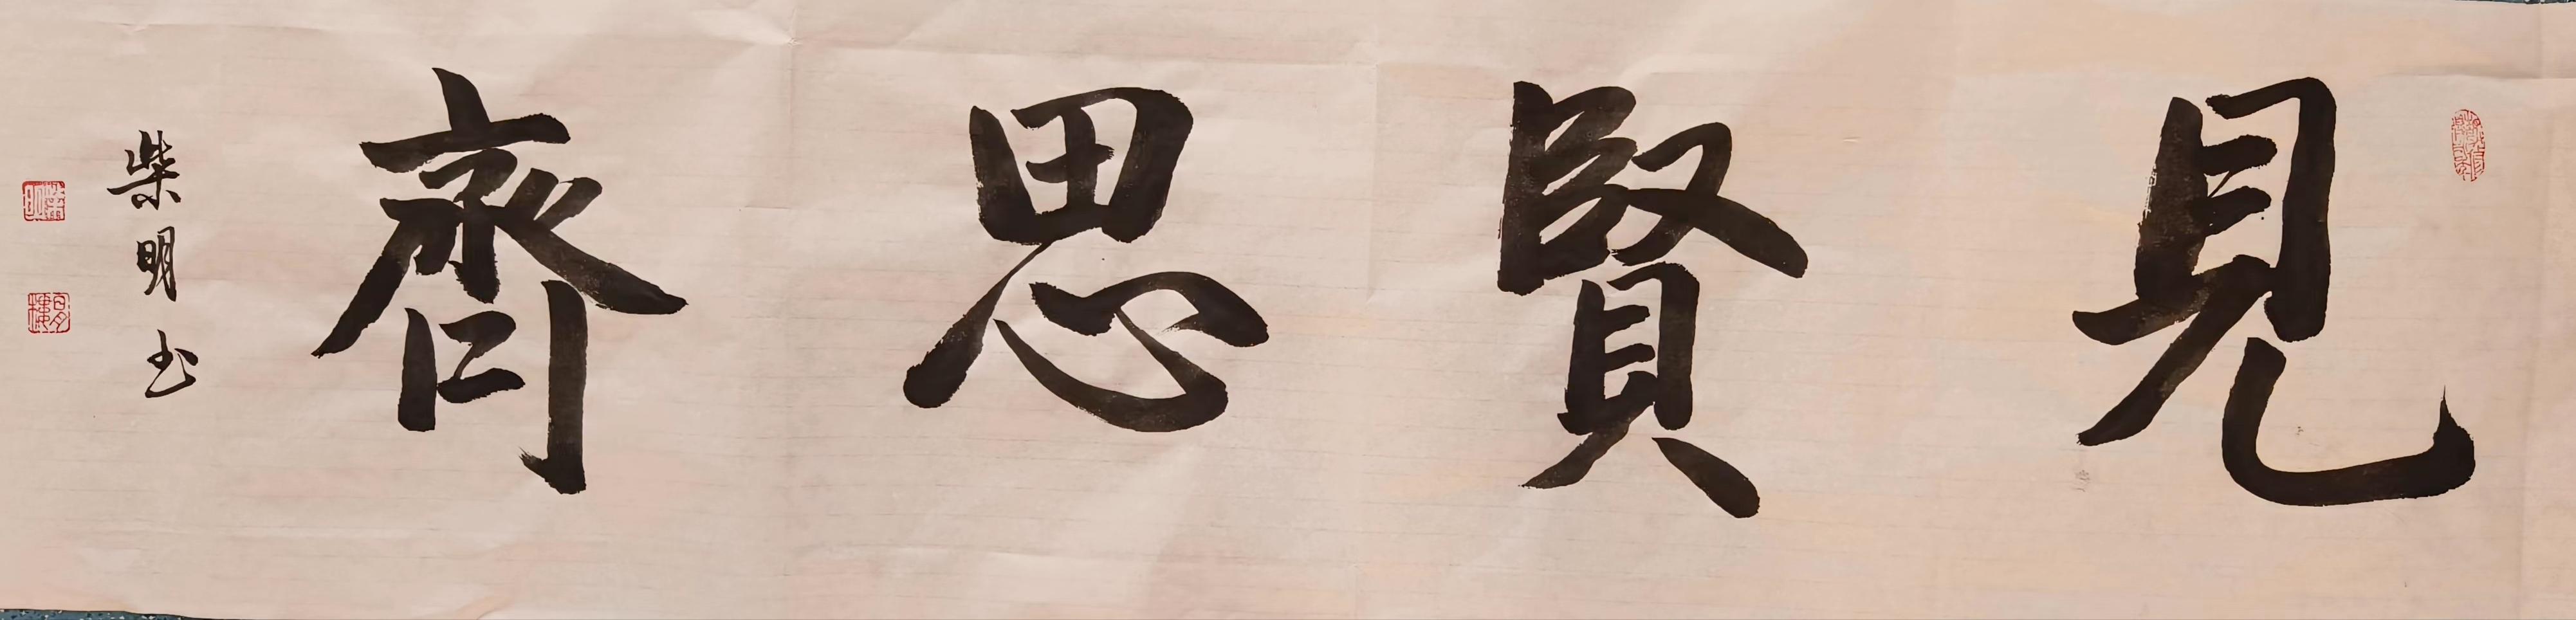 見賢思齊
柴明书